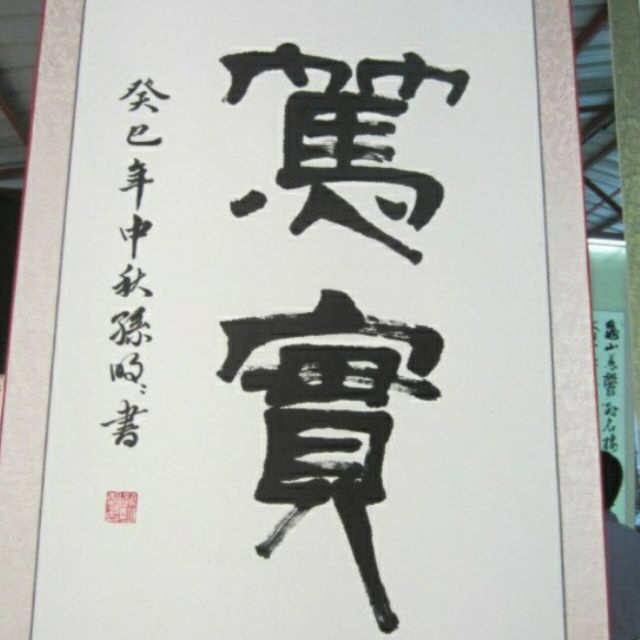 篤
實
癸巳年中秋孫明書